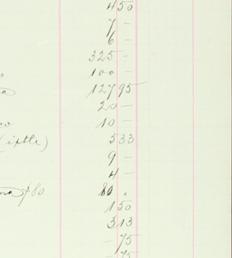 4 50
7 -
6 -
325 -
100 -
127 95
20 -
10 -
(ixtle) 5 33
9 -
4 -
$80 80 -
1 50
3 13
- 75
- 75